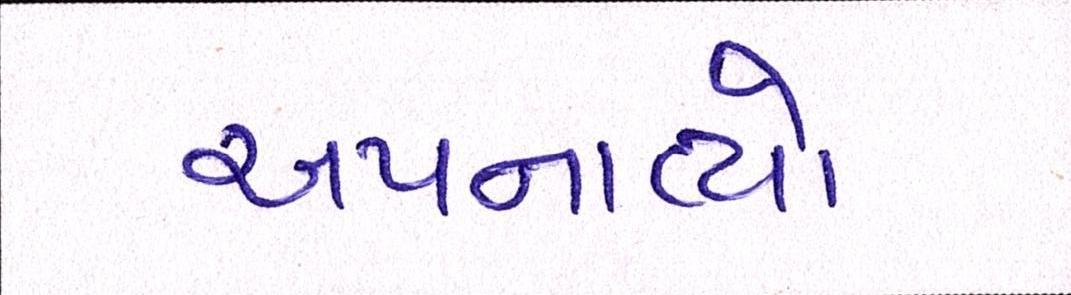 અપનાવ્યો